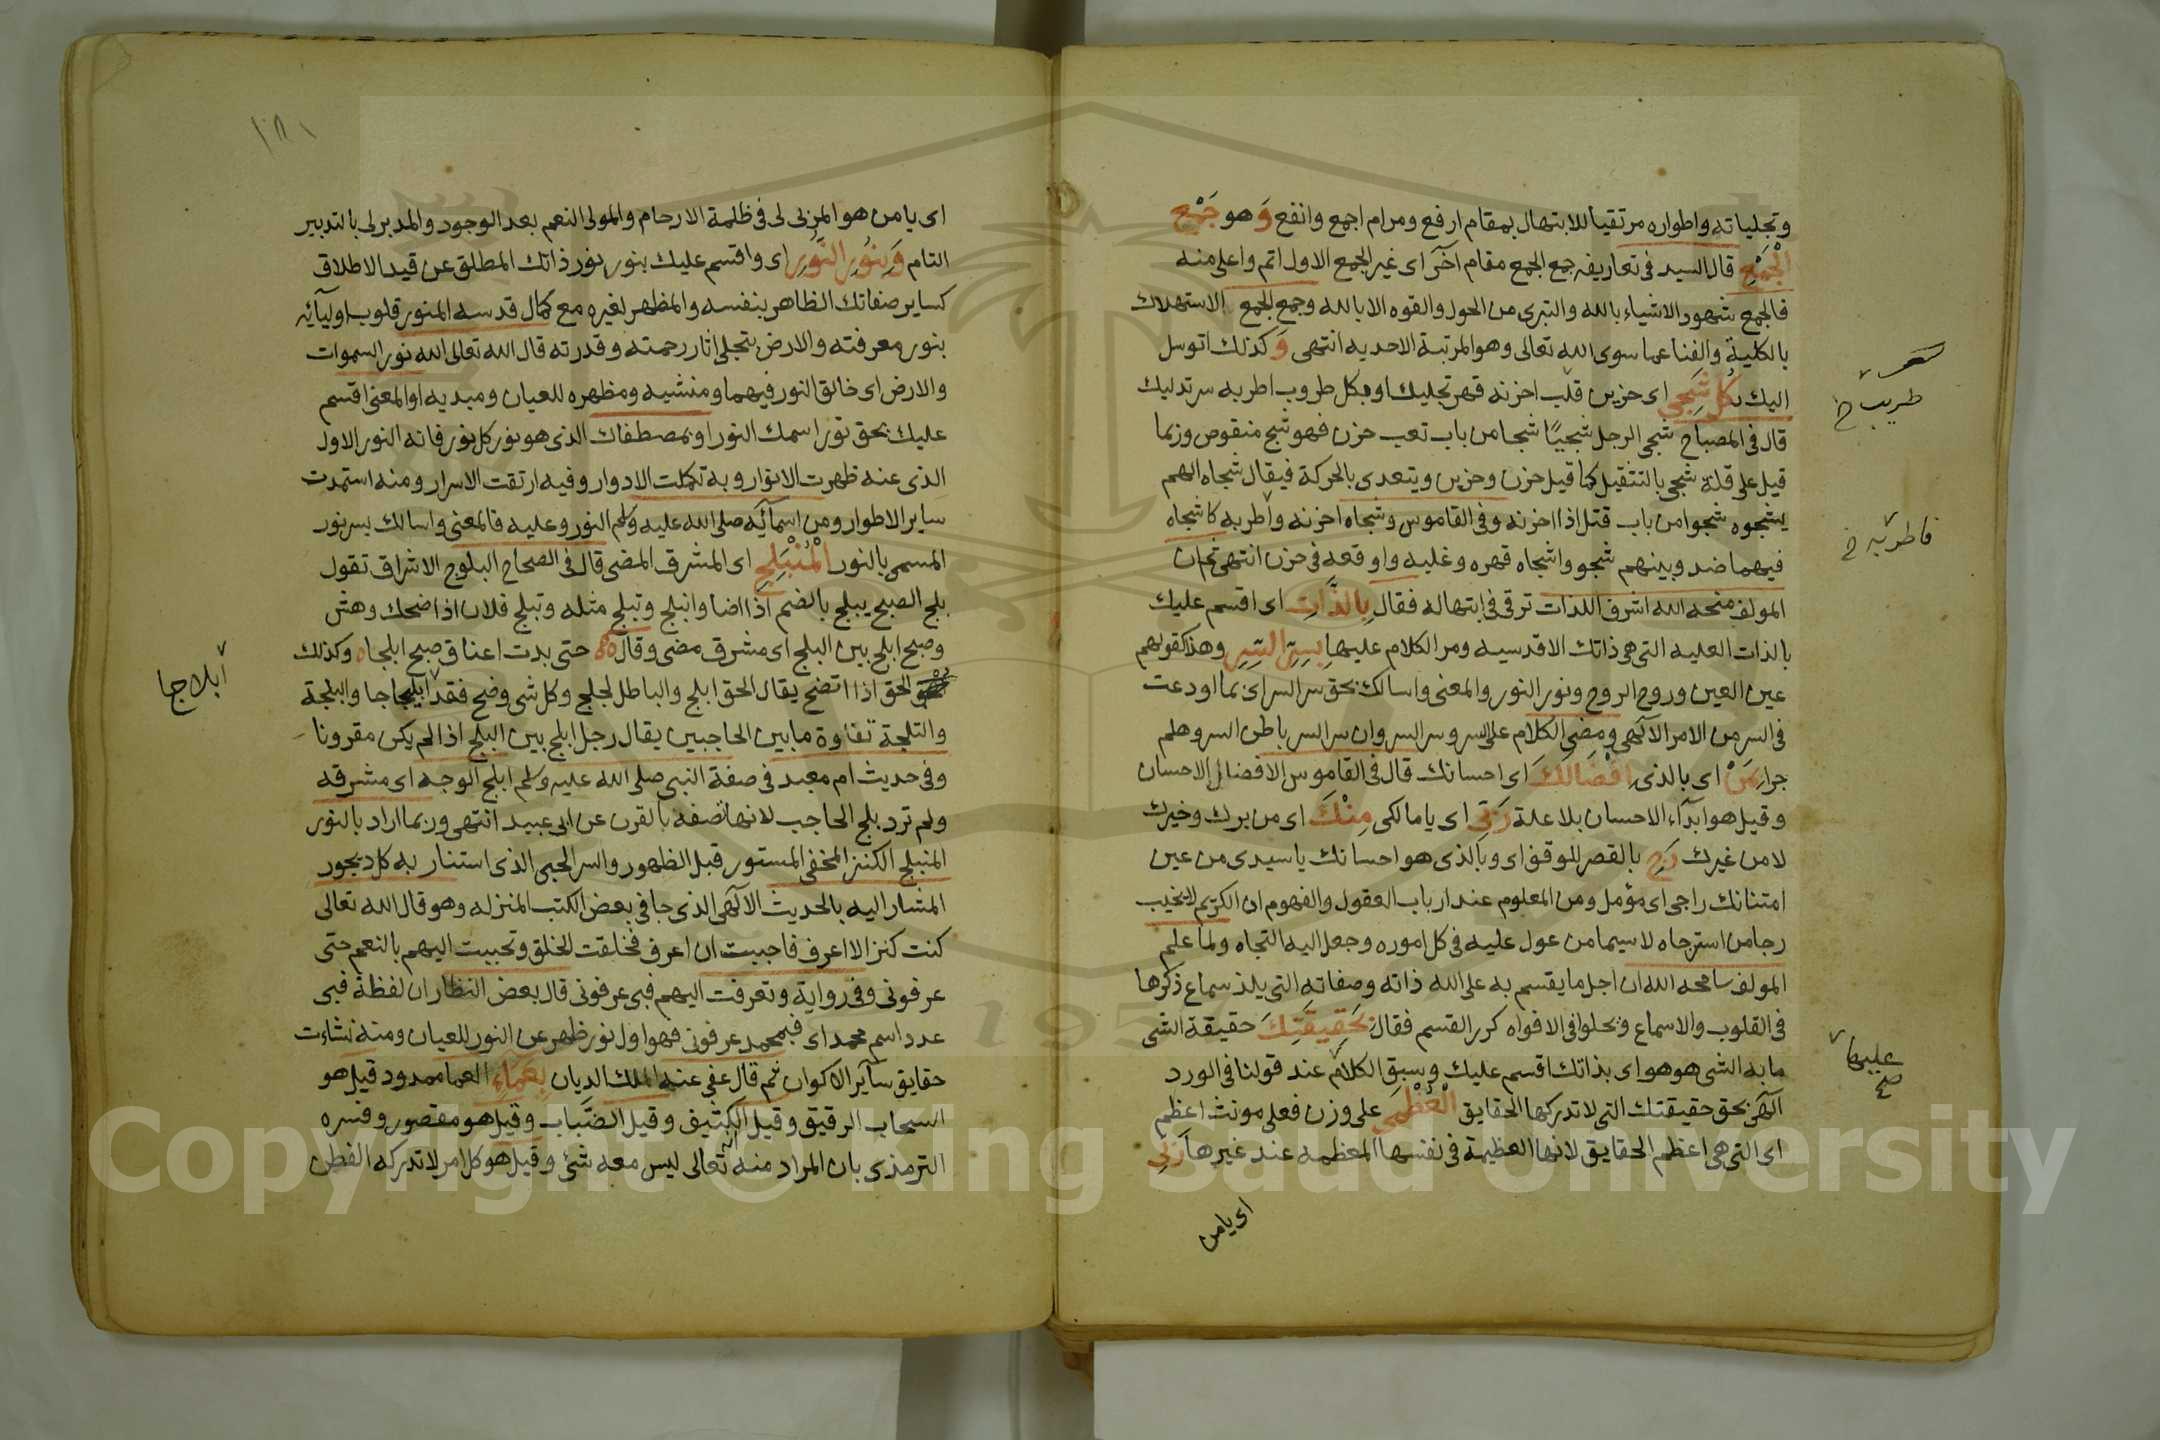 وتجلياته واطواره مرتقيا للابتهال بمقام ارفع ومرام اجمع وانفع وَهو جَمْع
الْجَمْعِ قال السيد في تعاريفه جمع الجمع مقام آخر اى غير الجمع الاول اتم واعلى منه
فالجمع شهود الاشياء بالله والتبرى من الحول والقوه الا بالله وجمع الجمع الاستهلاك
بالكلية والفنا عما سوى الله تعالى وهو المرتبة الاحديه انتهى وَ كذلك اتوسل
اليك بكُلِّ شَجِي اى حزين قلب احزنه قهر تجليك او بكل طروب اطربه سر تدليك
قال في المصباح شجى الرجل شجيا شجا من باب تعب حزن فهو شج منقوص وربما
قيل على قلة شجى بالتثقيل كما قيل حزن وحزين ويتعدى بالحركة فيقال شجاه الهم
يشجوه شجوا من باب قتل اذا احزنه وفي القاموس وشجاه احزنه واطربه كاشجاه
فيهما ضد وبينهم شجو واشجاه قهره وغلبه واوقعه في حزن انتهى ثم ان
المولف منحه الله اشرف اللذات ترقى في ابتهاله فقال بِالذَّاتِ اى اقسم عليك
بالذات العليه التى هى ذاتك الاقدسيه ومر الكلام عليها بِسِرِّ السِّرِ وهذا كقولهم
عين العين وروح الروح ونور النور والمعنى واسالك بحق سر السر اى بما اودعت
في السر من الامر الآلهى ومضى الكلام على السر وسر السر وان سر السر باطن السر وهلم
جرا بِمَنْ اى بالذى اِفْضَالَكَ اى احسانك قال في القاموس الافضال الاحسان
وقيل هو ابدآء الاحسان بلا علة رَبِّي اى يا مالكى مِنْكَ اى من برك وخيرك
لا من غيرك رَجِ بالقصر للوقف اى وبالذى هو احسانك يا سيدى من عين
امتنانك راجى اى مؤمل ومن المعلوم عند ارباب العقول والفهوم ان الكريم لا يخيب
رجا من استرجاه لا سيما من عول عليه في كل اموره وجعل اليه التجاه ولما علم
المولف سامحه الله ان اجل ما يقسم به على الله ذاته وصفاته التى يلذ سماع ذكرها
في القلوب والاسماع ويحلوا في الافواه كرر القسم فقال بَحَقِيقَتِكَ حقيقة الشى
ما به الشى هو هو اى بذاتك اقسم عليك وسبق الكلام عند قولنا في الورد
آلهى بحق حقيقتك التى لا تدركها الحقايق الْعُظْمَى على وزن فعلى مونث اعظم
اى التى هى اعظم الحقايق لانها العظيمة في نفسها المعظمه عند غيرها رَبِّي
اى يا من
طريب خ
فاطربه خ
عليها صح
اى يا من هو المربى لى في ظلمة الارحام والمولى النعم بعد الوجود والمدبر لى بالتدبير
التام وَبِنُورِ النُّورِ اى واقسم عليك بنور نور ذاتك المطلق عن قيد الاطلاق
كساير صفاتك الظاهر بنفسه والمظهر لغيره مع كمال قدسه المنور قلوب اوليآئه
بنور معرفته والارض بتجلى اثار رحمته وقدرته قال الله تعالى الله نور السموات
والارض اى خالق النور فيهما ومنشيه ومظهره للعيان ومبديه او المعنى اقسم
عليك بحق نور اسمك النور او بمصطفاك الذى هو نور كل نور فانه النور الاول
الذى عنه ظهرت الانوار وبه تكملت الادوار وفيه ارتقت الاسرار ومنه استمدت
ساير الاطوار ومن اسمآئه صلى الله عليه وسلم النور وعليه فالمعنى واسالك بسر نور
المسمى بالنور الْمُنْبَلِجِ اى المشرق المضى قال في الصحاح البلوج الاشراق تقول
بلج الصبح يبلج بالضم اذا اضا وانبلج وتبلج مثله وتبلج فلان اذا ضحك وهش
وصبح ابلج بين البلج اى مشرق مضى وقال حتى بدت اعناق صبح ابلجاه وكذلك
الحق اذا اتضح يقال الحق ابلج والباطل لجلج وكل شى وضح فقد ابلاجا جا والبلجة
والتلجة نقاوة ما بين الحاجبين يقال رجل ابلج بين البلج اذا لم يكن مقرونا
وفي حديث ام معبد في صفة النبى صلى الله عليه وسلم ابلج الوجه اى مشرقه
ولم ترد بلج الحاجب لانها تصفه بالقرن عن ابى عبيد انتهى وربما اراد بالنور
المنبلج الكنز المخفى المستور قبل الظهور والسر الحبى الذى استنار به كل ديجور
المشار اليه بالحديث الآلهى الذى جا في بعض الكتب المنزله وهو قال الله تعالى
كنت كنزا لا اعرف فاحببت ان اعرف فخلقت الخلق وتحببت اليهم بالنعم حتى
عرفونى وفي رواية وتعرفت اليهم فبى عرفونى قال بعض النظار ان لفظة فبى
عدد اسم محمد اى فبمحمد عرفونى فهو اول نور ظهر عن النور للعيان ومنه نشاءت
حقايق سآير الاكوان ثم قال عفى عنه الملك الديان بِعَماءِ العما ممدود قيل هو
السحاب الرقيق وقيل الكثيف وقيل الضباب وقيل هو مقصور وفسره
الترمذى بان المراد منه انه تعالى ليس معه شئ وقيل هو كل امر لا تدركه الفطن
ابلاجا
١٨١
Copyright © King Saud University
195